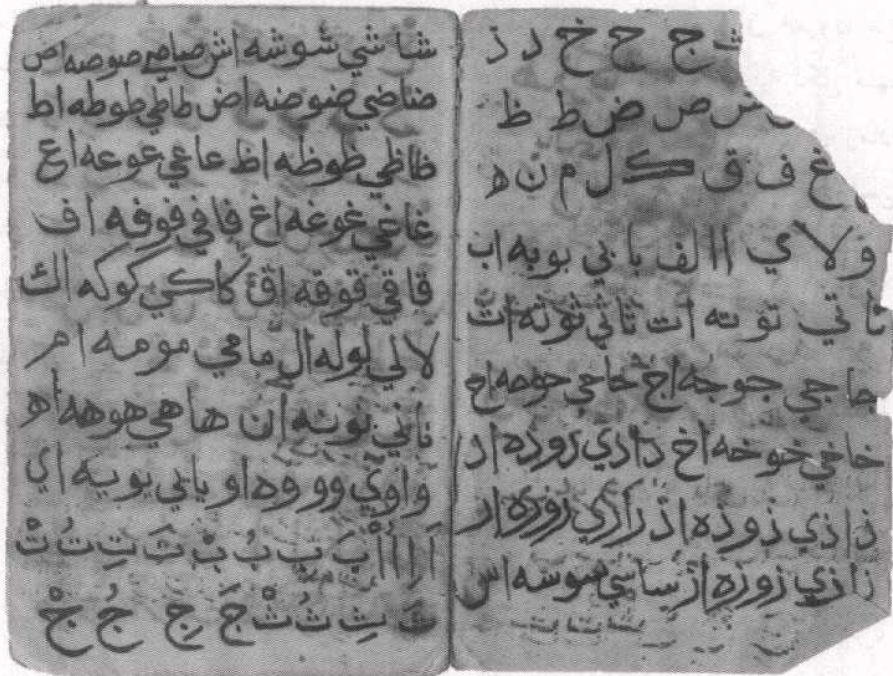 ث ج ح خ د ذ
ش ص ض ط ظ
غ ف ق ك ل م ن ه
و لا ي اا الف با بي بوبه اب
تا تي توته ات ثا ثي ثوثه اث
جا جي جوجه اج حا حي حوحه اح
خا خي خوخه اخ دا دي دوده اد
ذا ذي ذوذه اذ را ري روره ار
زا زي زوزه از سا سي سوسه اس
شا شي شوشه اش صا صي صوصه اص
ضا ضي ضوضه اض طا طي طوطه اط
ظا ظي ظوظه اظ عا عي عوعه اع
غا غي غوغه اغ فا في فوفه اف
قا قي قوقه اق كا كي كوكه اك
لا لي لوله ال ما مي مومه ام
نا ني نونه ان ها هي هوهه اه
وا وي ووه او يا يي يويه اي
اَ اِ اُ اْ بَ بِ بُ بْ تَ تِ تُ تْ
ثَ ثِ ثُ ثْ جَ جِ جُ جْ